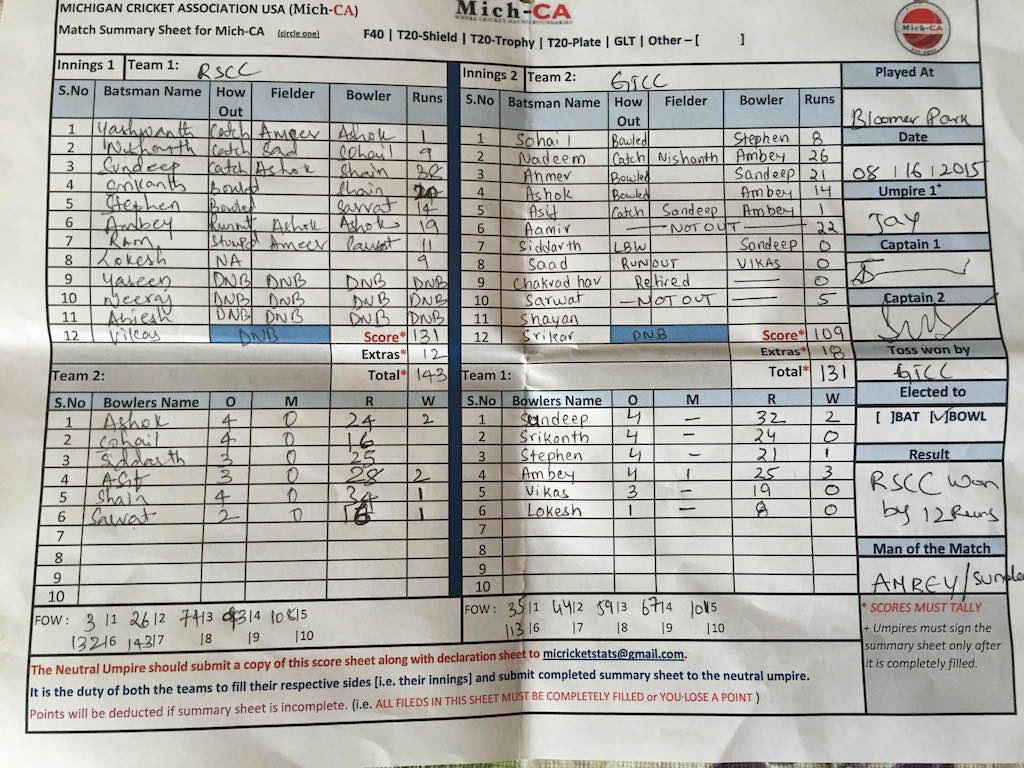 MICHIGAN CRICKET ASSOCIATION USA (Mich-CA)
Mich-CA
Mich-CA
Match Summary Sheet for Mich-CA (circle one) F40 | T20-Shield | T20-Trophy | T20-Plate | GLT | Other – [ ]
Innings 1 Team 1: RSCC
S.No Batsman Name How Out Fielder Bowler Runs
1 Yashwanth Catch Ameer Ashok 1
2 Nishanth Catch Sad Cohail 9
3 Sundeep Catch Ashok Shain 38
4 Srikanth Bowled Shain 20
5 Stephen Bowled Sarwat 14
6 Ambey Runout Ashok Ashok 19
7 Ram Stumped Ameer Sarwat 11
8 Lokesh NA 9
9 Yaseen DNB DNB DNB DNB
10 Neeraj DNB DNB DNB DNB
11 Abiesh DNB DNB DNB DNB
12 Vikas DNB Score* 131
Extras* 12
Total* 143
Team 2:
S.No Bowlers Name O M R W
1 Ashok 4 0 24 2
2 Cohail 4 0 16
3 Siddarth 3 0 25
4 Asif 3 0 28 2
5 Shain 4 0 34 1
6 Sarwat 2 0 16 1
7
8
9
10
FOW: 3 |1 26|2 74|3 93|4 108|5
132|6 143|7 |8 |9 |10
Innings 2 Team 2: GTCC
S.No Batsman Name How Out Fielder Bowler Runs
1 Sohail Bowled Stephen 8
2 Nadeem Catch Nishanth Ambey 26
3 Ahmer Bowled Sandeep 21
4 Ashok Bowled Ambey 14
5 Asif Catch Sandeep Ambey 1
6 Aamir NOT OUT 22
7 Siddarth LBW Sandeep 0
8 Saad RUNOUT VIKAS 0
9 Chakradhav Retired 0
10 Sarwat NOT OUT 5
11 Shayan
12 Srikar DNB Score* 109
Extras* 18
Total* 131
Team 1:
S.No Bowlers Name O M R W
1 Sandeep 4 – 32 2
2 Srikanth 4 – 24 0
3 Stephen 4 – 21 1
4 Ambey 4 1 25 3
5 Vikas 3 – 19 0
6 Lokesh 1 – 8 0
7
8
9
10
FOW: 35|1 44|2 59|3 67|4 101|5
113|6 |7 |8 |9 |10
Played At
Bloomer Park
Date
08/16/2015
Umpire 1+
Jay
Captain 1
Captain 2
Toss won by
GTCC
Elected to
[ ]BAT [✓]BOWL
Result
RSCC won
by 12 Runs
Man of the Match
AMBEY/
* SCORES MUST TALLY
+ Umpires must sign the
summary sheet only after
it is completely filled.
The Neutral Umpire should submit a copy of this score sheet along with declaration sheet to micricketstats@gmail.com.
It is the duty of both the teams to fill their respective sides [i.e. their innings] and submit completed summary sheet to the neutral umpire.
Points will be deducted if summary sheet is incomplete. (i.e. ALL FILEDS IN THIS SHEET MUST BE COMPLETELY FILLED or YOU LOSE A POINT )